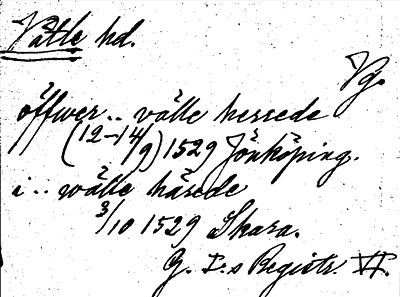 Välle hd.
Vg.
öffwer .. välle herrede
(12-14/9) 1529 Jönköping.
i .. wälle härede
3/10 1529 Skara.
G. I:s Registr. VI.